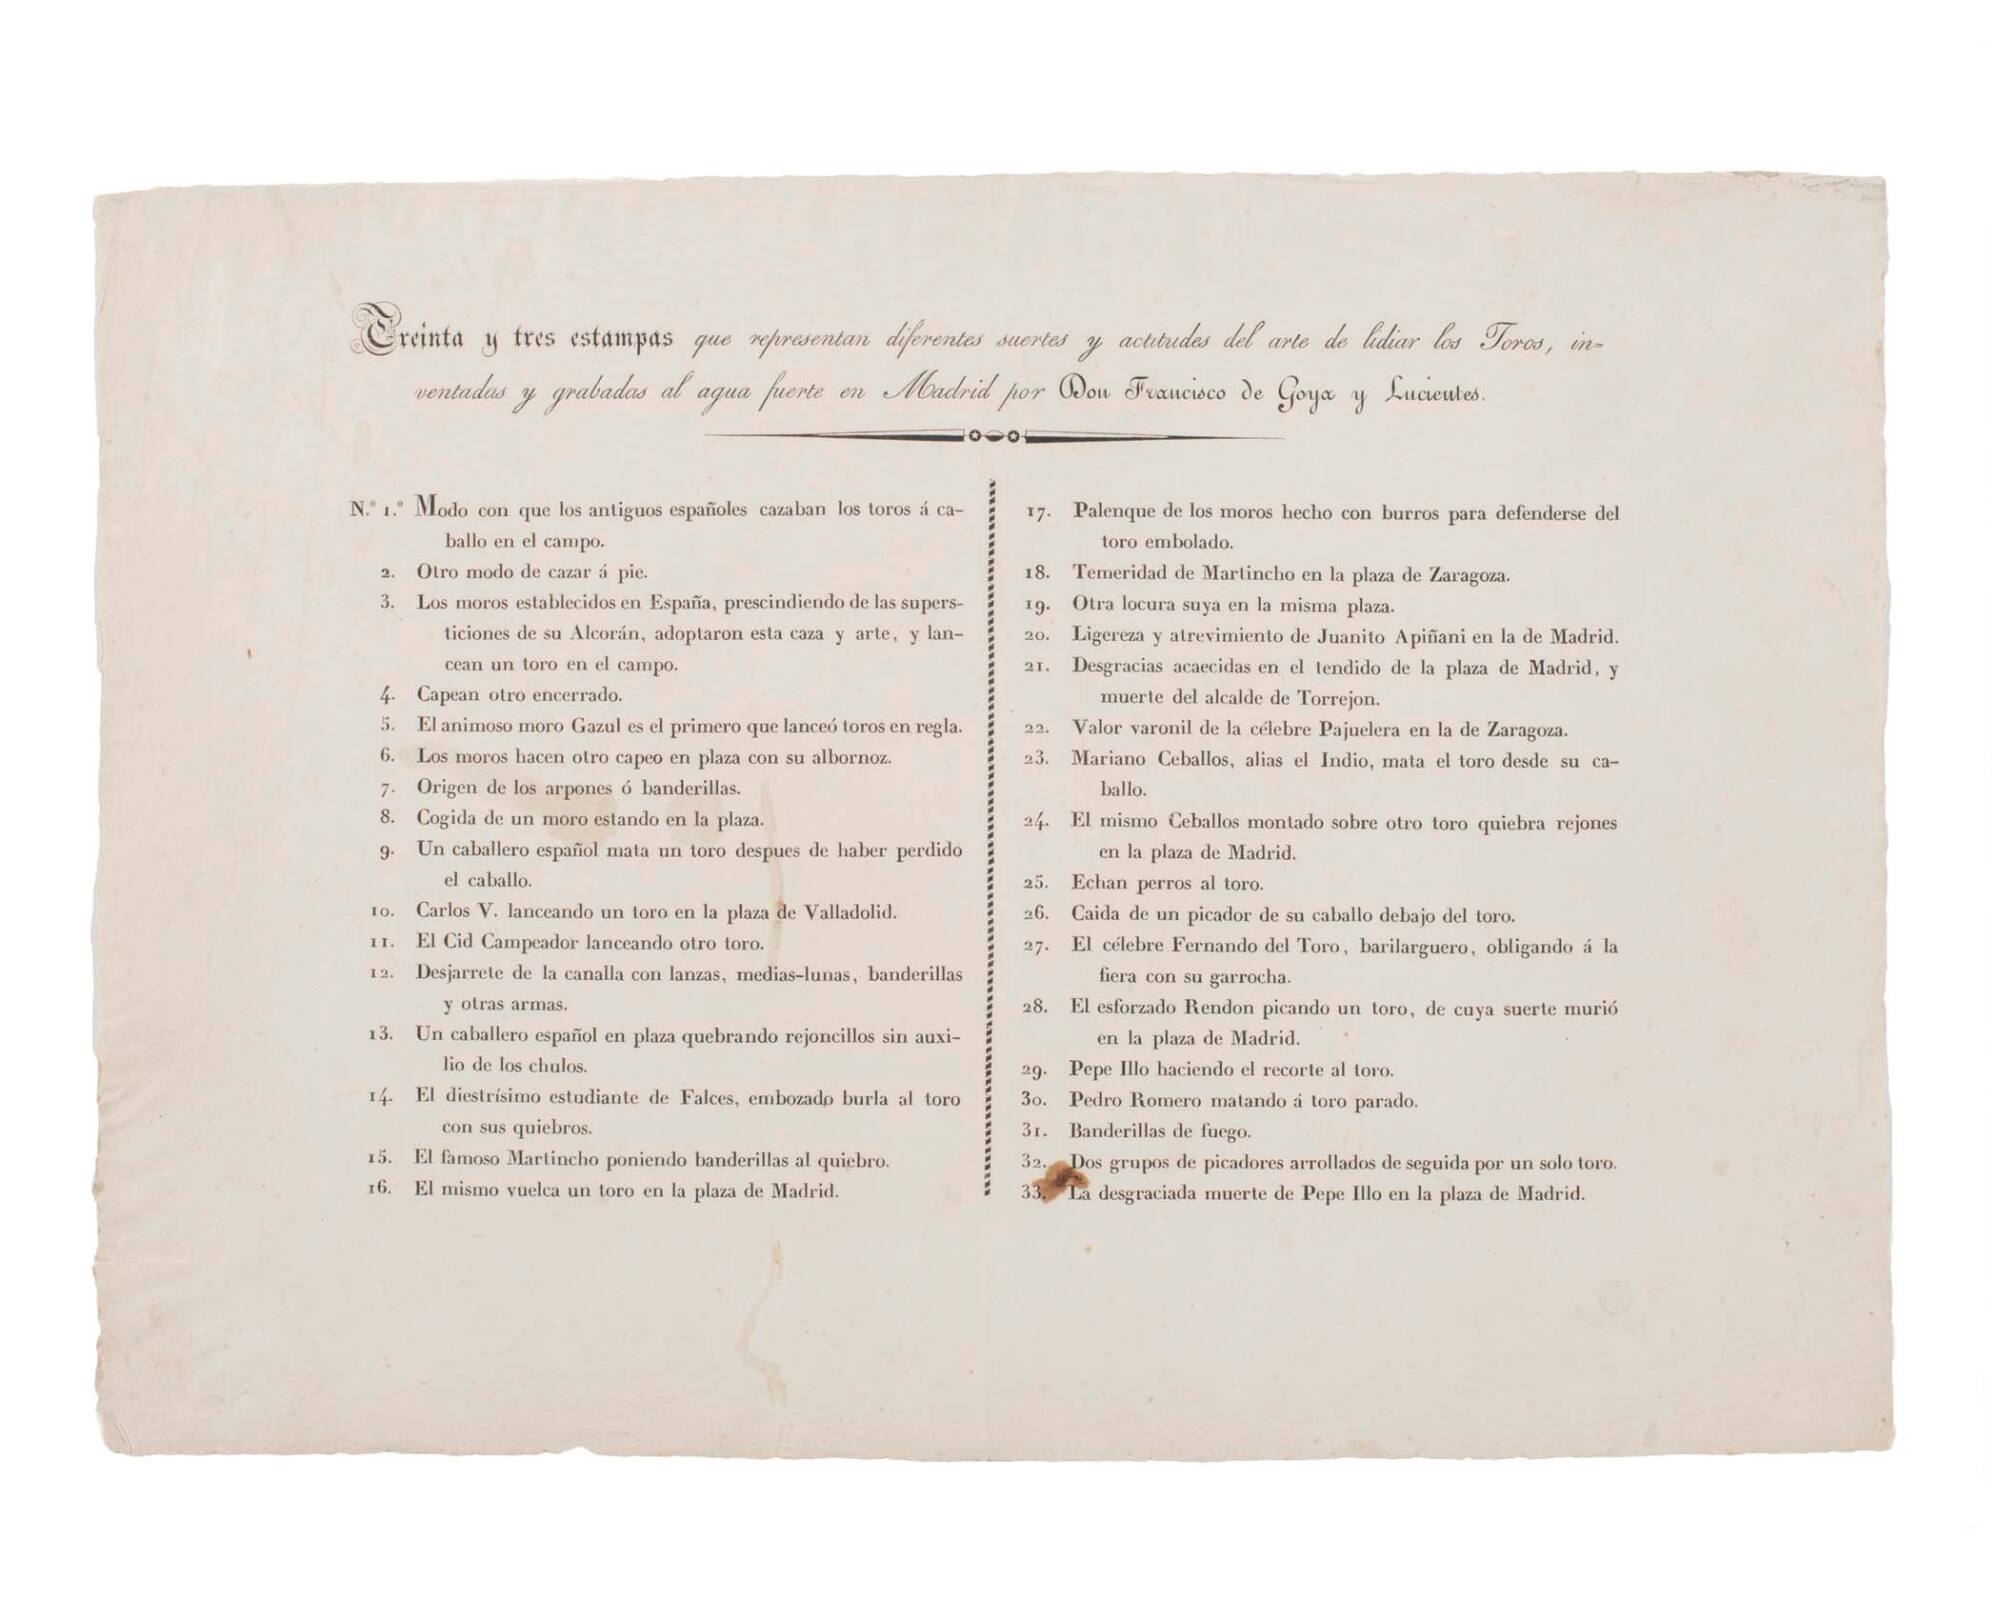 Treinta y tres estampas que representan diferentes suertes y actitudes del arte de lidiar los Toros, in=
ventadas y grabadas al agua fuerte en Madrid por Don Francisco de Goya y Lucientes.
N.º 1.º Modo con que los antiguos españoles cazaban los toros á ca-
ballo en el campo.
2. Otro modo de cazar á pie.
3. Los moros establecidos en España, prescindiendo de las supers-
ticiones de su Alcorán, adoptaron esta caza y arte, y lan-
cean un toro en el campo.
4. Capean otro encerrado.
5. El animoso moro Gazul es el primero que lanceó toros en regla.
6. Los moros hacen otro capeo en plaza con su albornoz.
7. Origen de los arpones ó banderillas.
8. Cogida de un moro estando en la plaza.
9. Un caballero español mata un toro despues de haber perdido
el caballo.
10. Carlos V. lanceando un toro en la plaza de Valladolid.
11. El Cid Campeador lanceando otro toro.
12. Desjarrete de la canalla con lanzas, medias-lunas, banderillas
y otras armas.
13. Un caballero español en plaza quebrando rejoncillos sin auxi-
lio de los chulos.
14. El diestrísimo estudiante de Falces, embozado burla al toro
con sus quiebros.
15. El famoso Martincho poniendo banderillas al quiebro.
16. El mismo vuelca un toro en la plaza de Madrid.
17. Palenque de los moros hecho con burros para defenderse del
toro embolado.
18. Temeridad de Martincho en la plaza de Zaragoza.
19. Otra locura suya en la misma plaza.
20. Ligereza y atrevimiento de Juanito Apiñani en la de Madrid.
21. Desgracias acaecidas en el tendido de la plaza de Madrid, y
muerte del alcalde de Torrejon.
22. Valor varonil de la célebre Pajuelera en la de Zaragoza.
23. Mariano Ceballos, alias el Indio, mata el toro desde su ca-
ballo.
24. El mismo Ceballos montado sobre otro toro quiebra rejones
en la plaza de Madrid.
25. Echan perros al toro.
26. Caida de un picador de su caballo debajo del toro.
27. El célebre Fernando del Toro, barilarguero, obligando á la
fiera con su garrocha.
28. El esforzado Rendon picando un toro, de cuya suerte murió
en la plaza de Madrid.
29. Pepe Illo haciendo el recorte al toro.
30. Pedro Romero matando á toro parado.
31. Banderillas de fuego.
32. Dos grupos de picadores arrollados de seguida por un solo toro.
33. La desgraciada muerte de Pepe Illo en la plaza de Madrid.